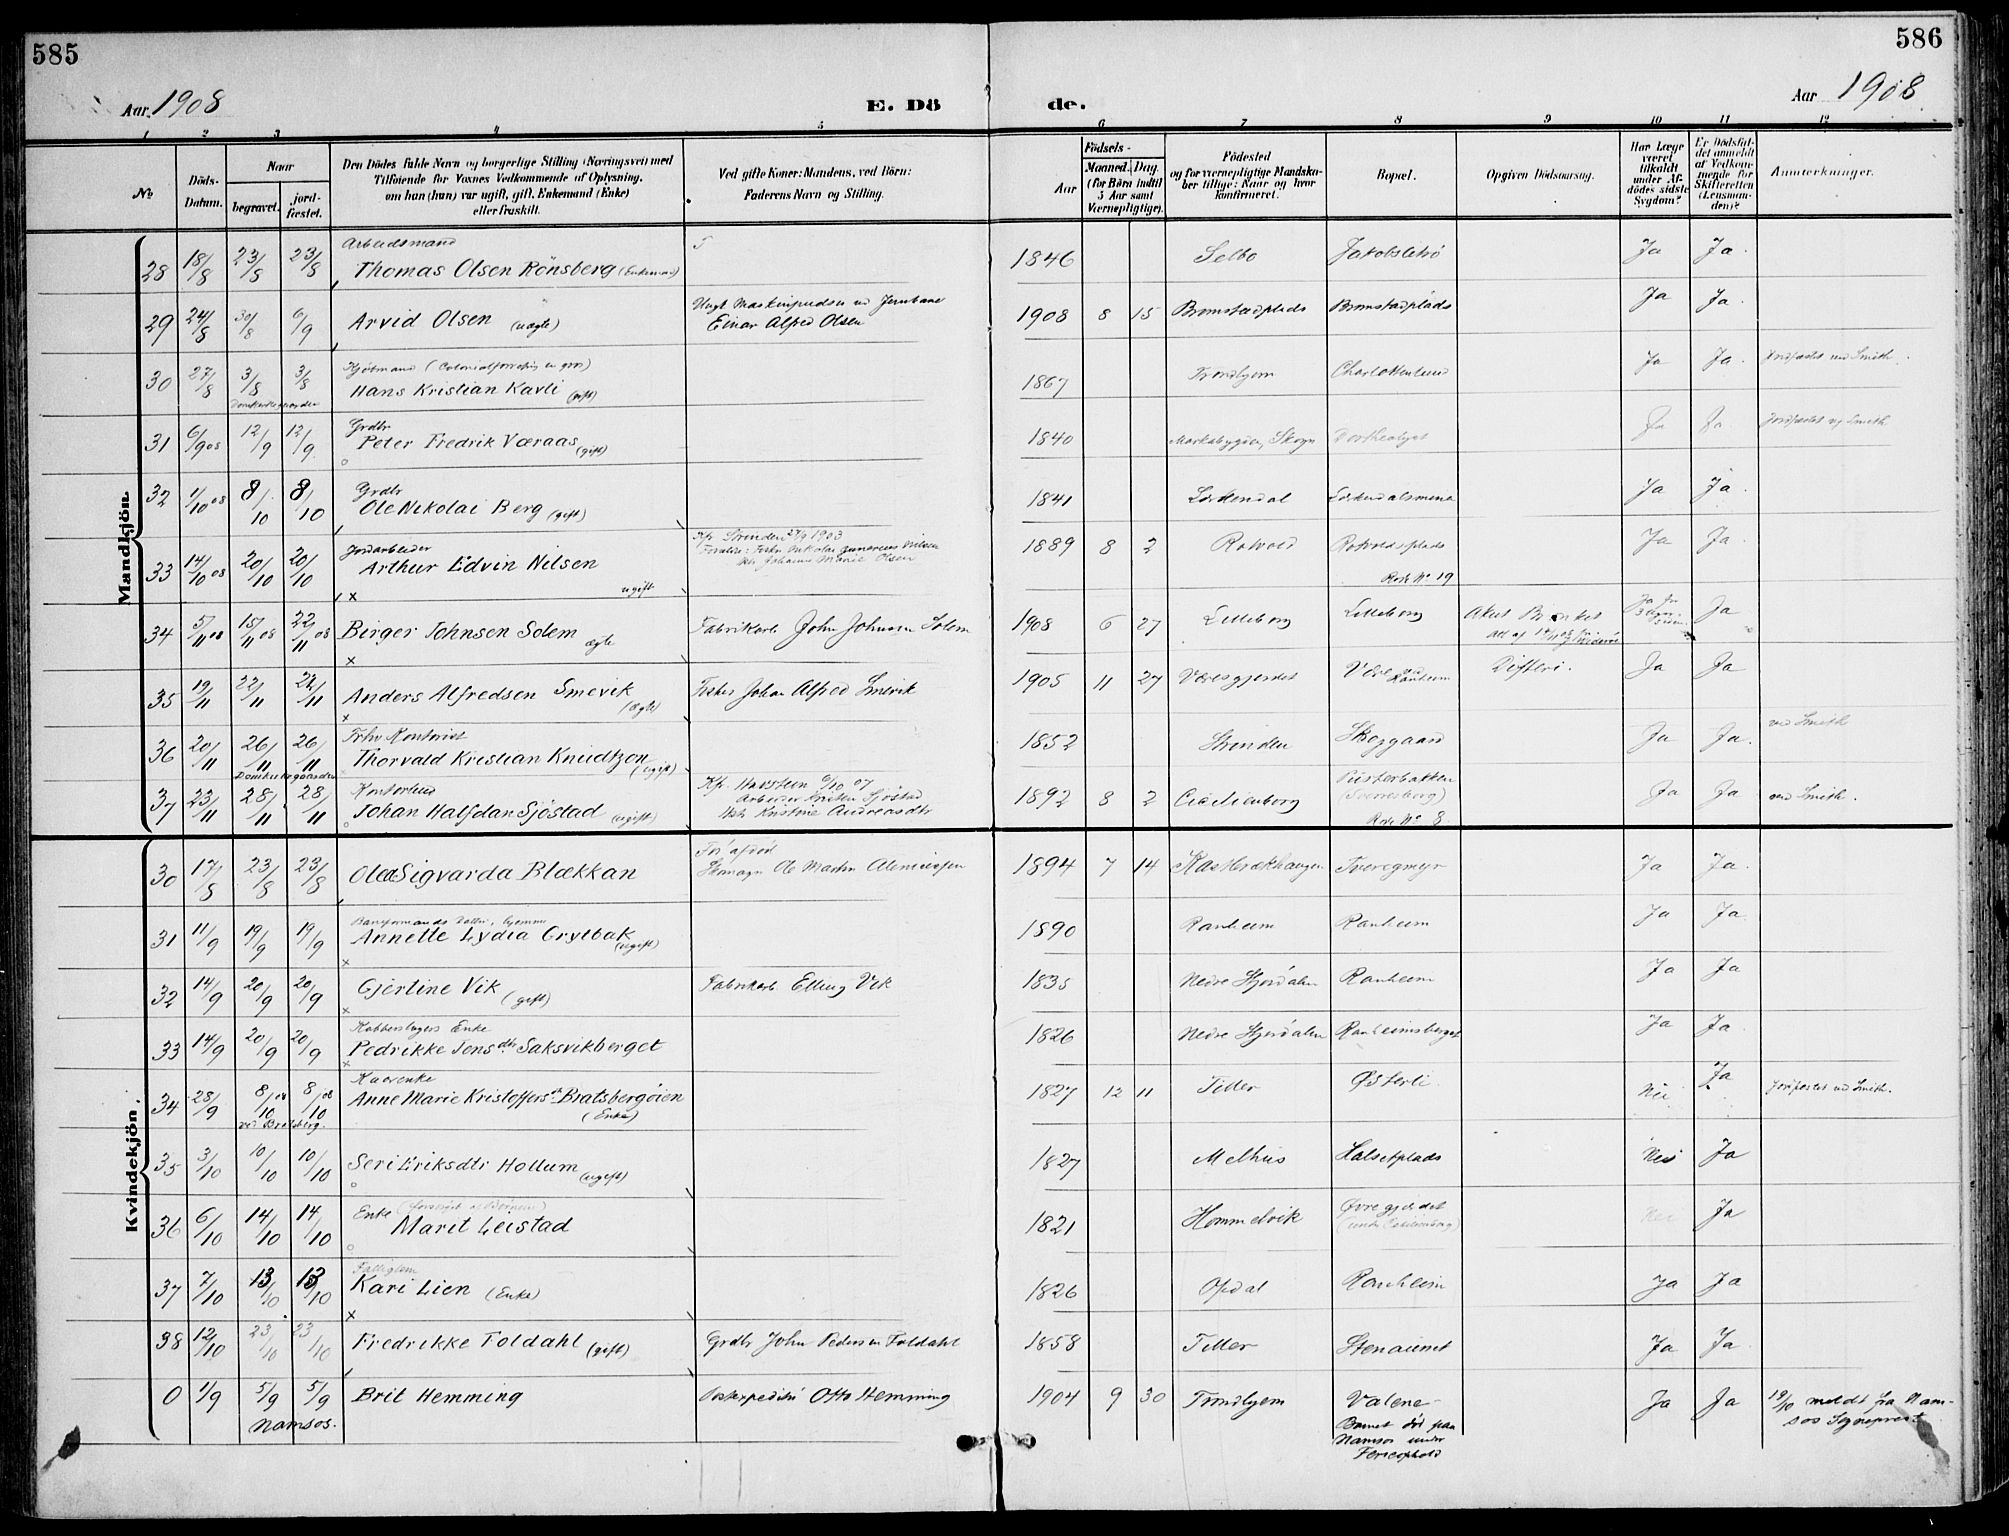 585
586
Aar 1908
E. Dö
de.
Aar 1908
1 2 3 4 5 6 7 8 9 10 11 12
No
Döds-Datum.
Naar
begravet.
jord-fæstet.
Den Dödes fulde Navn og borgerlige Stilling (Næringsvei) med
Tilföiende for Voxnes Vedkommende af Oplysning,
om han (hun) var ugift, gift, Enkemand (Enke)
eller fraskilt.
Ved gifte Koner: Mandens, ved Börn:
Faderens Navn og Stilling.
Födsels-
Aar
Maaned.
Dag.
(for Börn indtil
5 Aar samt
Værnepligtige).
Födested
og for værnepligtige Mandska-
ber tillige: Naar og hvor
konfirmeret.
Bopæl.
Opgiven Dödsaarsag.
Har Læge
været
tilkaldt
under Af-
dödes sidste
Sygdom?
Er Dödsfal-
det anmeldt
af Vedkom-
mende for
Skifteretten
(Lensman-
den)?
Anmærkninger.
Mandkjön.
Arbeidsmand
28 18/8 23/8 23/8 Thomas Olsen Rönsberg (Enkemand) 1846 Selbo Ja Ja.
Ungk Maskinpudser ved Jernbane
29 24/8 30/8 6/9 Arvid Olsen (uægte) Einar Alfred Olsen 1908 8 15 Bromstadplads Bromstadplads Ja Ja.
Kjöbmand
30 27/8 3/8 3/8 Hans Kristian Kavli (gift) 1867 Trondhjem Charlottenlund Ja Ja. Jordfæstet ved Smith.
Domkirkegaarden
Grdbr
31 6/9 08 12/9 12/9 Peter Fredrik Væraas (gift) 1840 Markabygden, Skogn Ja Ja Jordfæstet v/ Smith
Grdbr
32 1/10 08 8/10 8/10 Ole Nikolai Berg (gift) 1841 Lerkendal Ja Ja.
Jordarbeider
Kfr. Strinden 27/9 1903
33 14/10 08 20/10 20/10 Arthur Edvin Nilsen ugift 1889 8 2 Rotvold Rotvoldsplads Ja Ja.
Johanna Marie Olsen
Rode No 19
34 5/11 08 15/11 08 22/11 08 Birger Johnsen Solem ægte Fabrikarb John Johnsen Solem 1908 6 27 Lilleborg Lilleborg Akut Ja
35 19/11 22/11 22/11 Anders Alfredsen Smevik (ægte) Fisker Johan Alfred Smevik 1905 11 27 Væresgjerdet Være Ranheim Difteri. Ja Ja
Frhv Kontorist
36 20/11 26/11 26/11 Thorvald Kristian Knudtzon (ugift) 1852 Strinden Skoggaard Ja Ja. ved Smith
Domkirkegaarden
Kontorbud
Kfr. Havstein 6/10 07
37 23/11 28/11 28/11 Johan Halfdan Sjöstad (ugift) 1892 8 2 Cecilienborg (Sverresborg) Ja Ja ved Smith.
Hst Kristine Andreasdtr
Rode No 8.
Kvindekjön.
30 17/8 23/8 23/8 Olea Sigvarda Blækkan Ole Martin 1894 7 14 Tveregmyr Ja Ja.
31 11/9 19/9 19/9 Annette Lydia Grytbak (ugift) 1890 Ranheim Ranheim Ja Ja.
32 14/9 20/9 20/9 Gjertine Vik (gift) Fabrikarb Elling Vik 1835 Nedre Stjördalen Ranheim Ja Ja
Kobberslagers Enke
33 14/9 20/9 20/9 Pedrikke Jensdtr Saksvikberget 1826 Nedre Stjördalen Ranheimsberget Ja Ja.
Kaarenke
34 28/9 8/10 08 8/10 08 Anne Marie Kristoffersdt Bratsbergöien (Enke) 1827 12 11 Tiller Österli Nei Ja Jordfæstet ved Smith.
ved Bratsberg.
35 3/10 10/10 10/10 Seri Eriksdtr Hollum (ugift) 1827 Melhus Halsetplads Nei Ja
Enke
36 6/10 14/10 14/10 Marit Leistad 1821 Hommelvik Övregjerdet (under Cecilienborg) Nei Ja
Fattiglem
37 7/10 13/10 13/10 Kari Lien (Enke) 1826 Opdal Ranheim Ja Ja
38 12/10 23/10 23/10 Fredrikke Foldahl (gift) Grdbr John Pedersen Foldahl 1858 Tiller Stenaunet Ja Ja.
0 1/9 5/9 5/9 Brit Hemming Postexpeditör Otto Hemming 1904 9 30 Trondhjem Valene Ja Ja 19/10 meldt fra Nam-
sos Sogneprest
Namsos.
Barnet död paa
Namsos under
Ferieophold